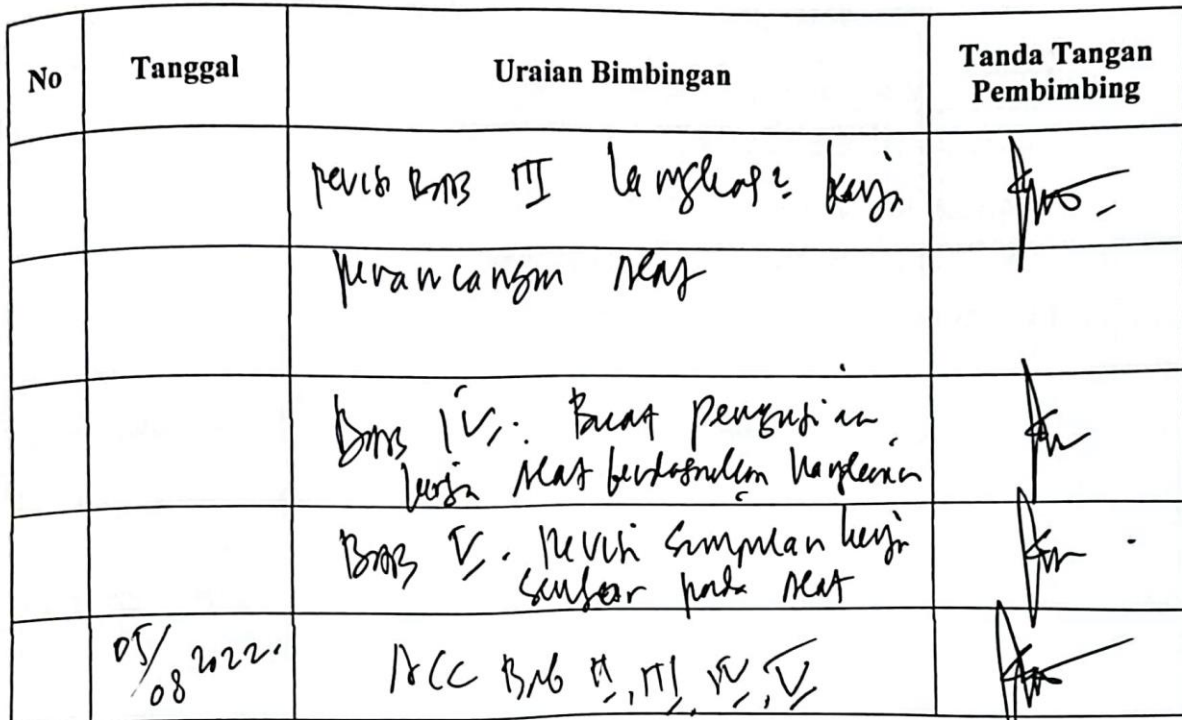 No Tanggal Uraian Bimbingan Tanda Tangan Pembimbing
revisi BAB III langkah² kerja
perancangan Alat
BAB IV. Buat pengujian
kerja Alat berdasarkan
BAB V. Revisi Simpulan kerja
sensor pada Alat
05/08 2022. ACC BAB II, III, IV, V